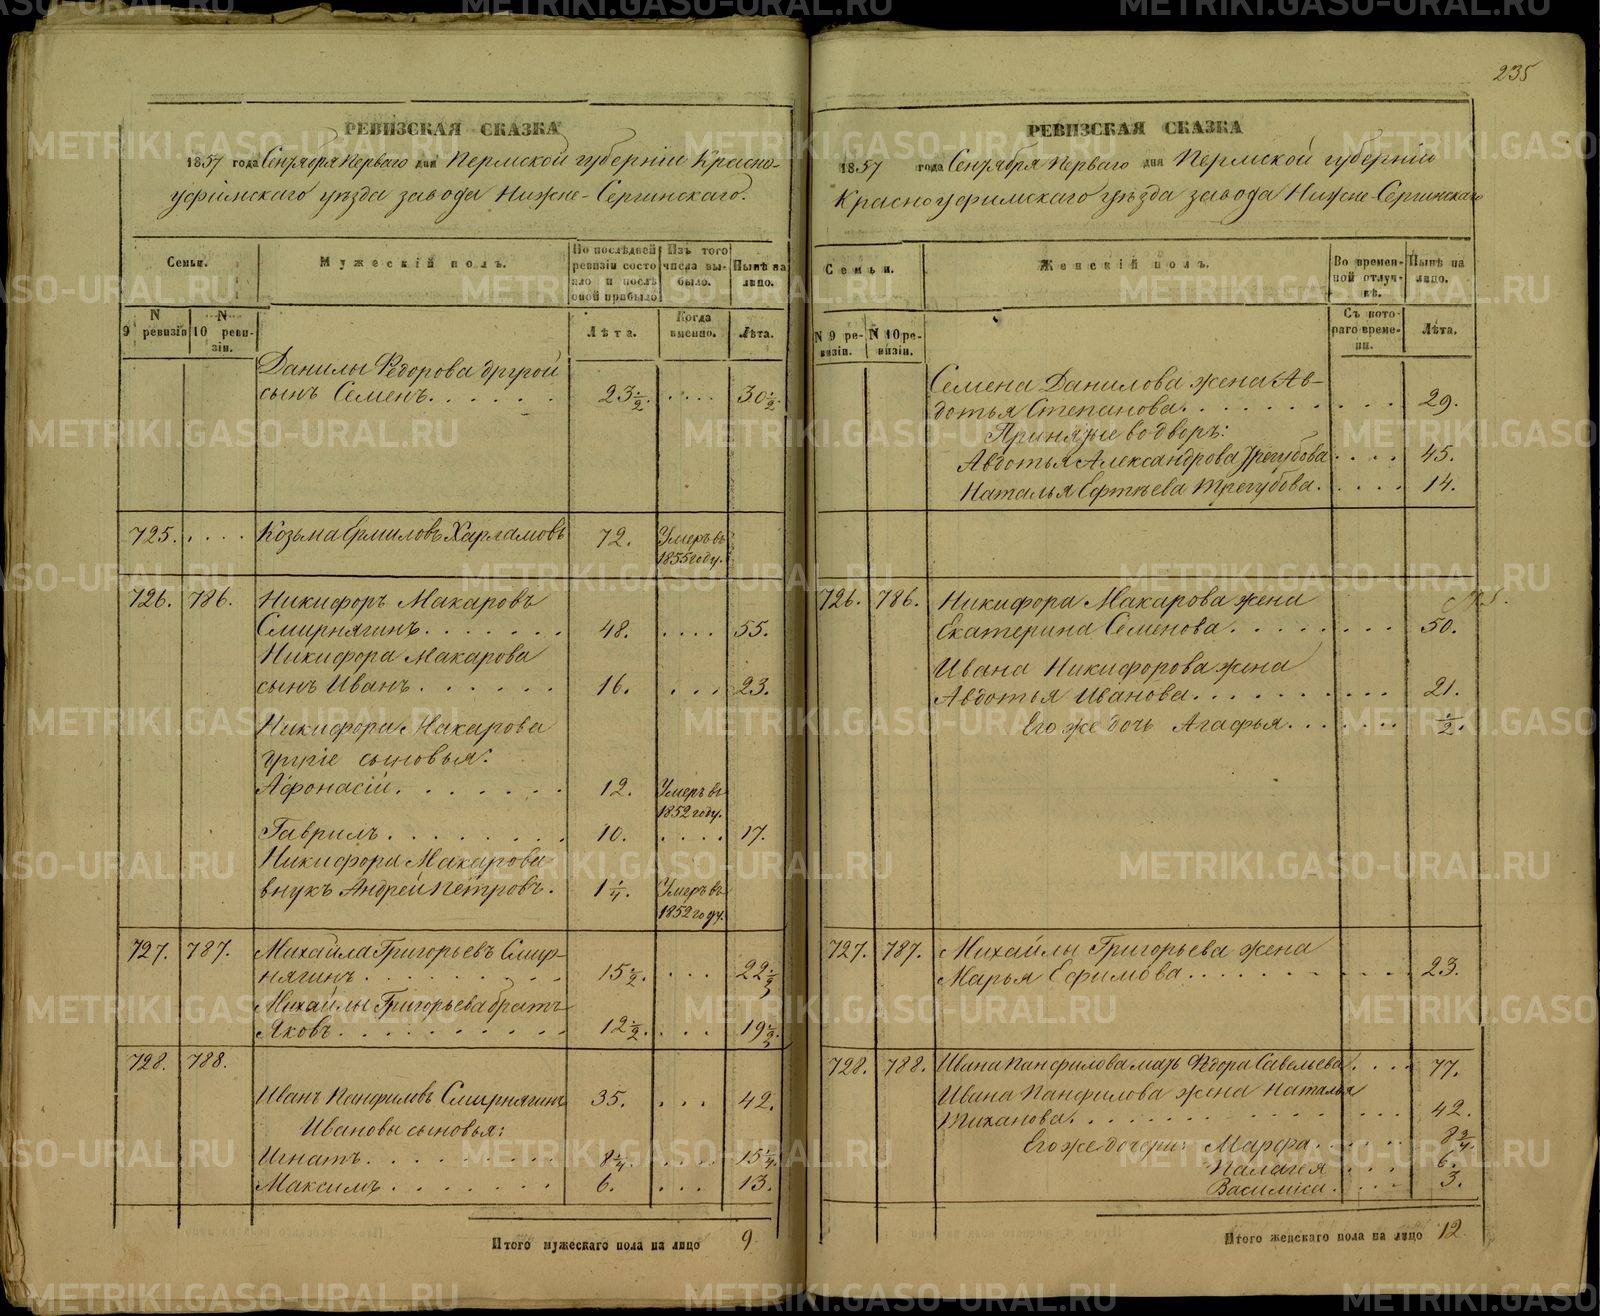 235
РЕВИЗСКАЯ СКАЗКА
1857 года Сентября перваго дня Пермской губерніи Красно-
уфимскаго уѣзда завода Нижне-Сергинскаго.
Семьи.
Мужескій полъ.
По послѣдней ревизіи состояло и послѣ оной прибыло
Изъ того числа выбыло.
Нынѣ на лицо.
N 9 ревизіи
N 10 ревизіи.
Лѣта.
Когда именно.
Лѣта.
Данилы Федорова другой
сынъ Семенъ. . . . . . 23½. . . . . 30½.
725. . . . . Козьма Ермиловъ Харламовъ 72. Умеръ въ
1855 году.
726. 786. Никифоръ Макаровъ
Смирнягинъ. . . . . . 48. . . . . 55.
Никифора Макарова
сынъ Иванъ. . . . . . 16. . . . 23.
Никифора Макарова
другіе сыновья:
Афонасій. . . . . . . 12. Умеръ въ
1852 году.
Гаврилъ. . . . . . . . 10. . . . . 17.
Никифора Макарова
внукъ Андрей Петровъ. 1¼. Умеръ въ
1852 году.
727. 787. Михайла Григорьевъ Смир-
нягинъ. . . . . . . . 15½. . . . 22½
Михайлы Григорьева братъ
Яковъ. . . . . . . . . 12½. . . . 19½.
728. 788.
Иванъ Панфиловъ Смирнягинъ 35. . . . 42.
Ивановы сыновья:
Игнатъ. . . . . . . . 8¼. . . . . 15¼.
Максимъ. . . . . . . 6. . . . 13.
Итого мужескаго пола на лицо 9
РЕВИЗСКАЯ СКАЗКА
1857 года Сентября перваго дня Пермской губерніи
Красноуфимскаго уѣзда завода Нижне-Сергинскаго
Семьи.
Женскій полъ.
Во временной отлучкѣ.
Нынѣ на лицо.
N 9 ревизіи.
N 10 ревизіи.
Съ котораго времени.
Лѣта.
Семена Данилова жена Ав-
дотья Степанова. . . . . . . . . . 29.
Принятые во дворъ:
Авдотья Александрова Трегубова . . . . 45.
Наталья Трегубова. . . . . 14.
726. 786. Никифора Макарова жена
Екатерина Семенова. . . . . . . . 50.
Ивана Никифорова жена
Авдотья Иванова. . . . . . . . . . 21.
Его же дочь Агафья. . . . . . . ½.
727. 787. Михайлы Григорьева жена
Марья Ефимова. . . . . . . . . . 23.
728. 788. Ивана Панфилова мать Федора Савельева. . . . 77.
Ивана Панфилова жена Наталья
Тиханова. . . . . . . . . . . . 42.
Его же дочери: Марфа. . . . . . 8¾.
Палагея . . . . 6.
Василиса. . . . . 3.
Итого женскаго пола на лицо 12
METRIKI.GASO-URAL.RU